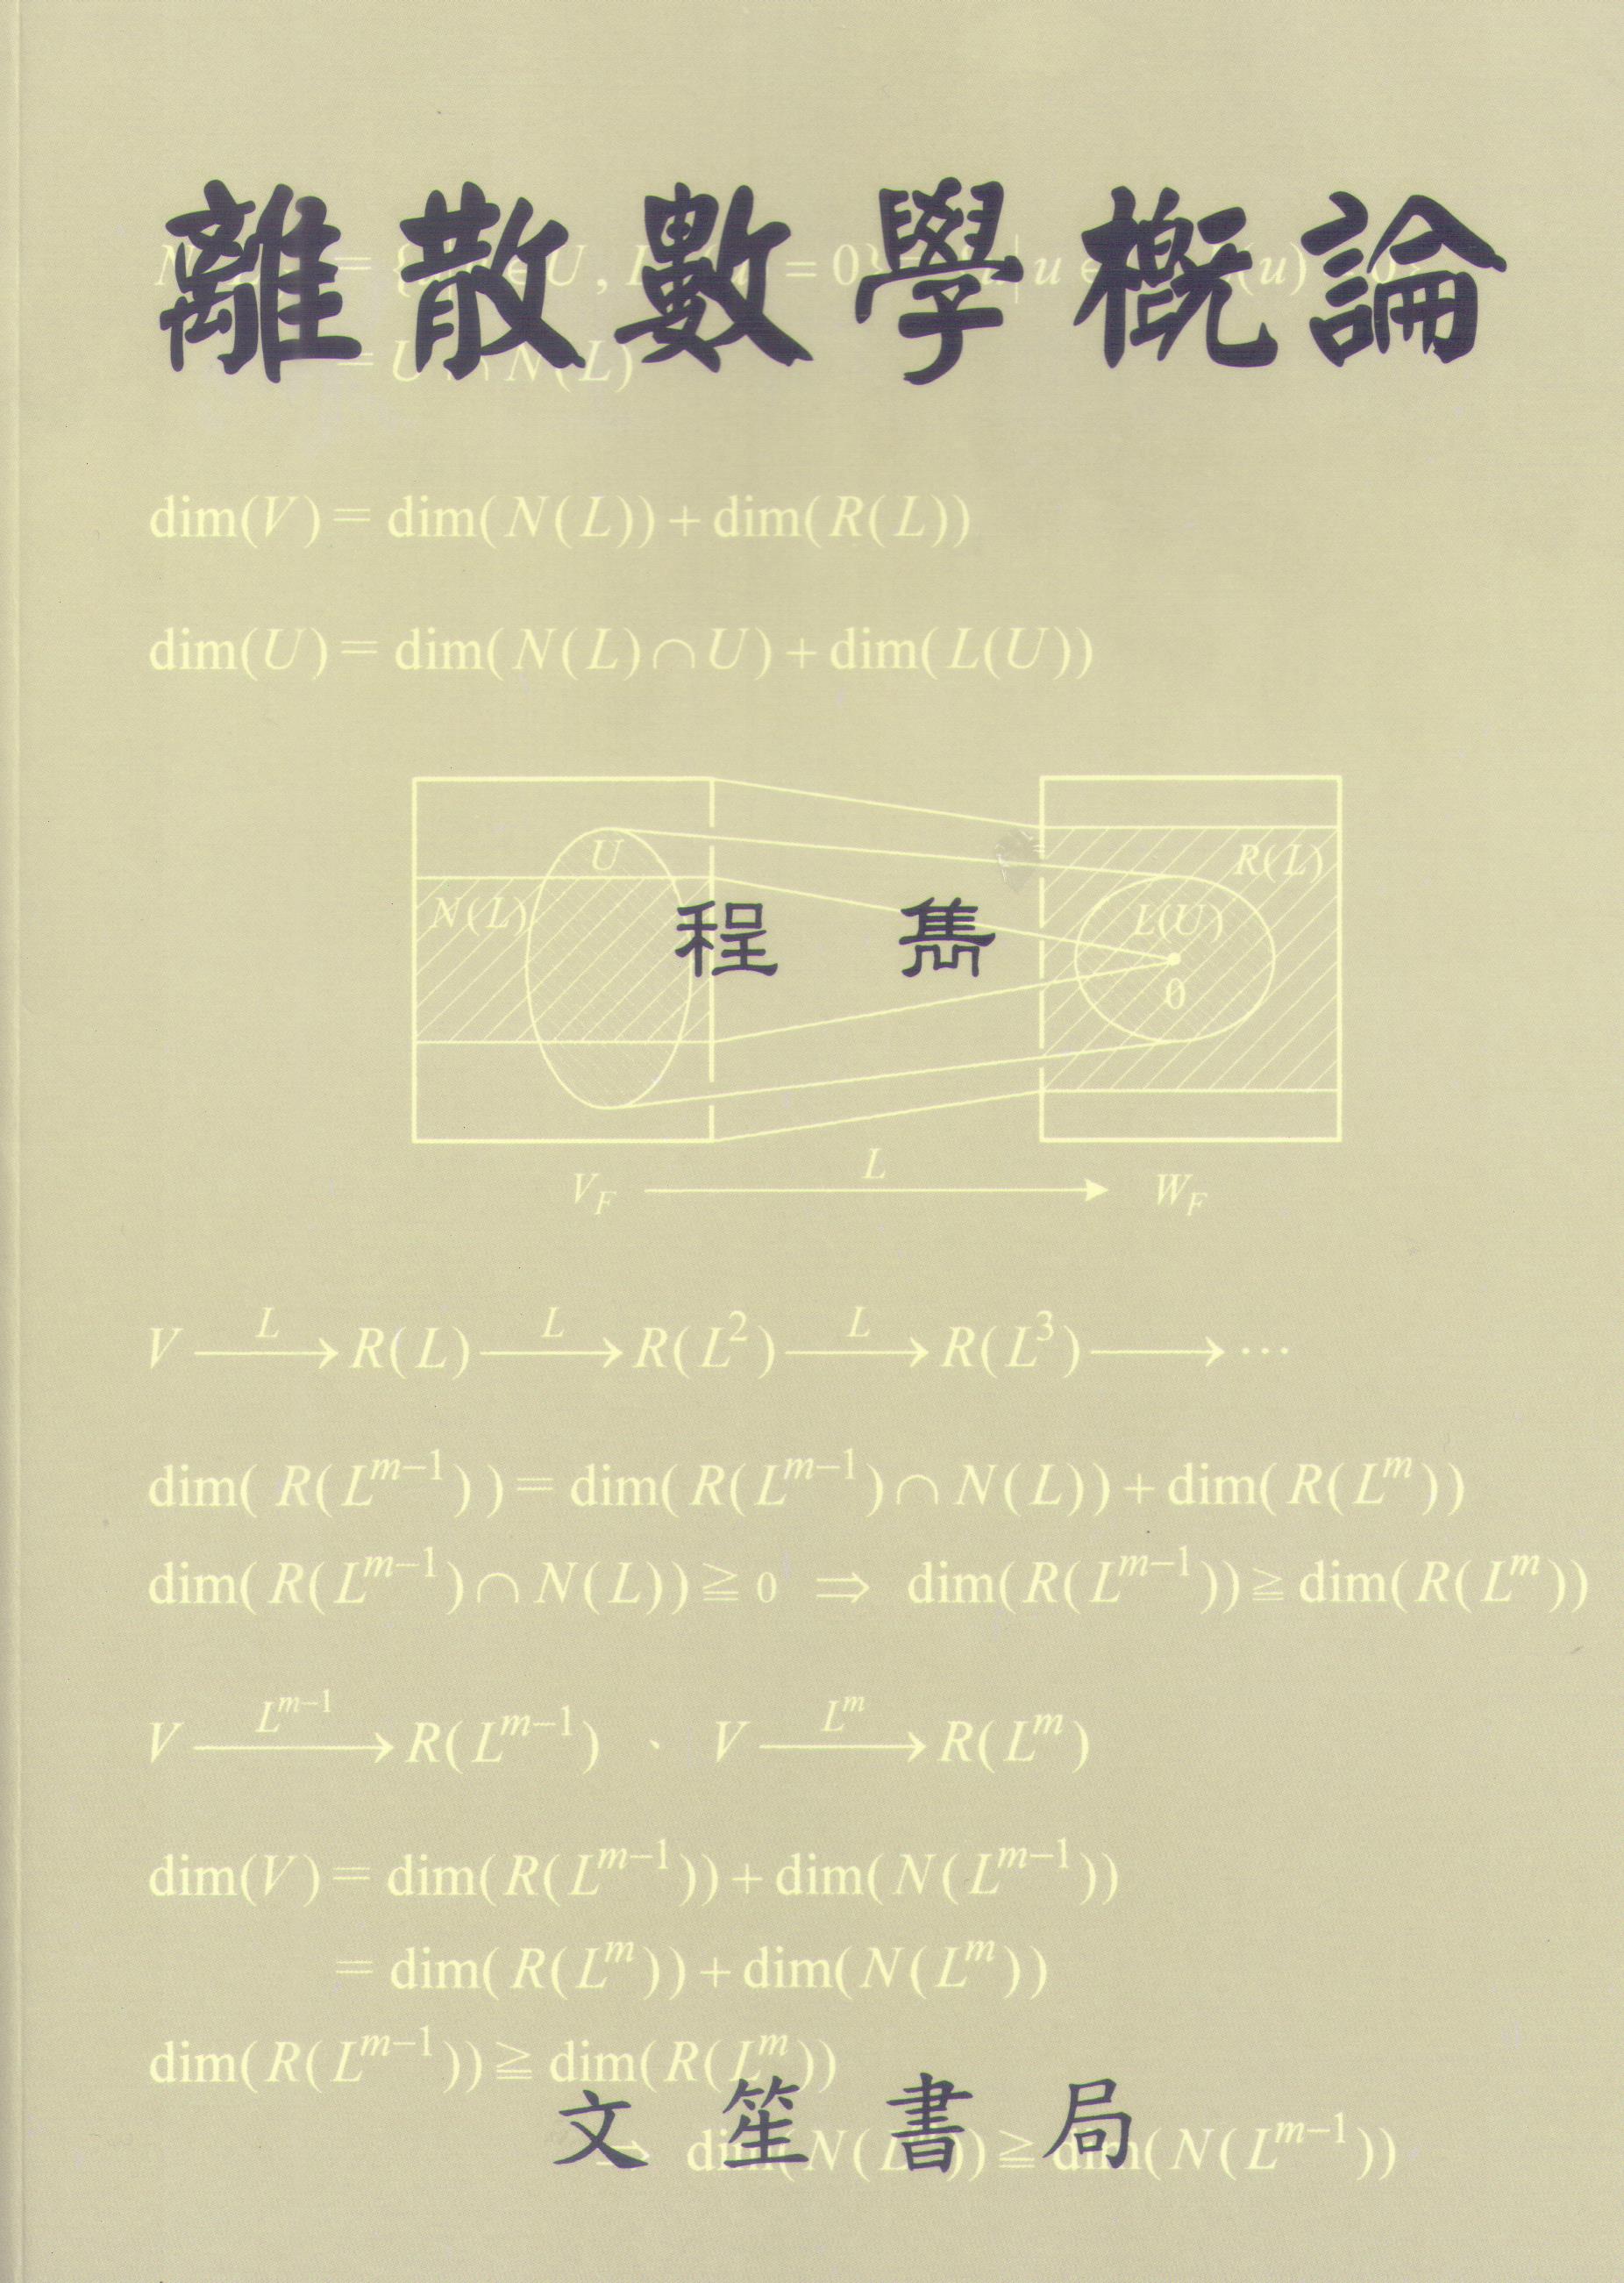 離散數學概論
= {   ∈ U ,   = 0}   u | u ∈   (u)
= U ∩ N(L)
dim(V) = dim(N(L)) + dim(R(L))
dim(U) = dim(N(L)∩U) + dim(L(U))
U
R(L)
N(L)
L(U)
程雋
0
L
V_F
W_F
V —L→ R(L) —L→ R(L²) —L→ R(L³) ⟶ ⋯
dim( R(L^{m−1}) ) = dim( R(L^{m−1}) ∩ N(L)) + dim( R(L^m))
dim( R(L^{m−1}) ∩ N(L)) ≧ 0 ⇒ dim(R(L^{m−1})) ≧ dim(R(L^m))
V —L^{m−1}→ R(L^{m−1}) 、 V —L^m→ R(L^m)
dim(V) = dim(R(L^{m−1})) + dim(N(L^{m−1}))
= dim( R(L^m)) + dim(N(L^m))
dim(R(L^{m−1})) ≧ dim(R(L^m))
文笙書局
⇒ dim(N(L^m)) ≧ dim(N(L^{m−1}))